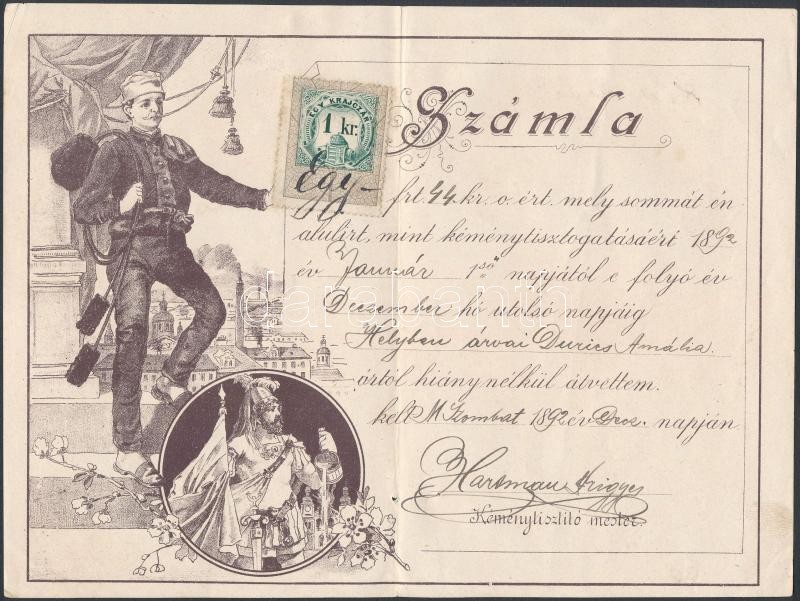 Számla
EGY KRAJCZÁR
1 kr.
Egy— frt 44 kr. o. ért. mely sommát én
alulirt, mint kéménytisztogatásáért 1892
év Január 1ső napjától e folyó év
Deczember hó utolsó napjáig
Helyben árvai Durics Amália.
ártól hiány nélkül átvettem.
kelt M Szombat 1892 év Decz. napján
Hartman Frigyes
Kéménytisztitó mester.
darabanth